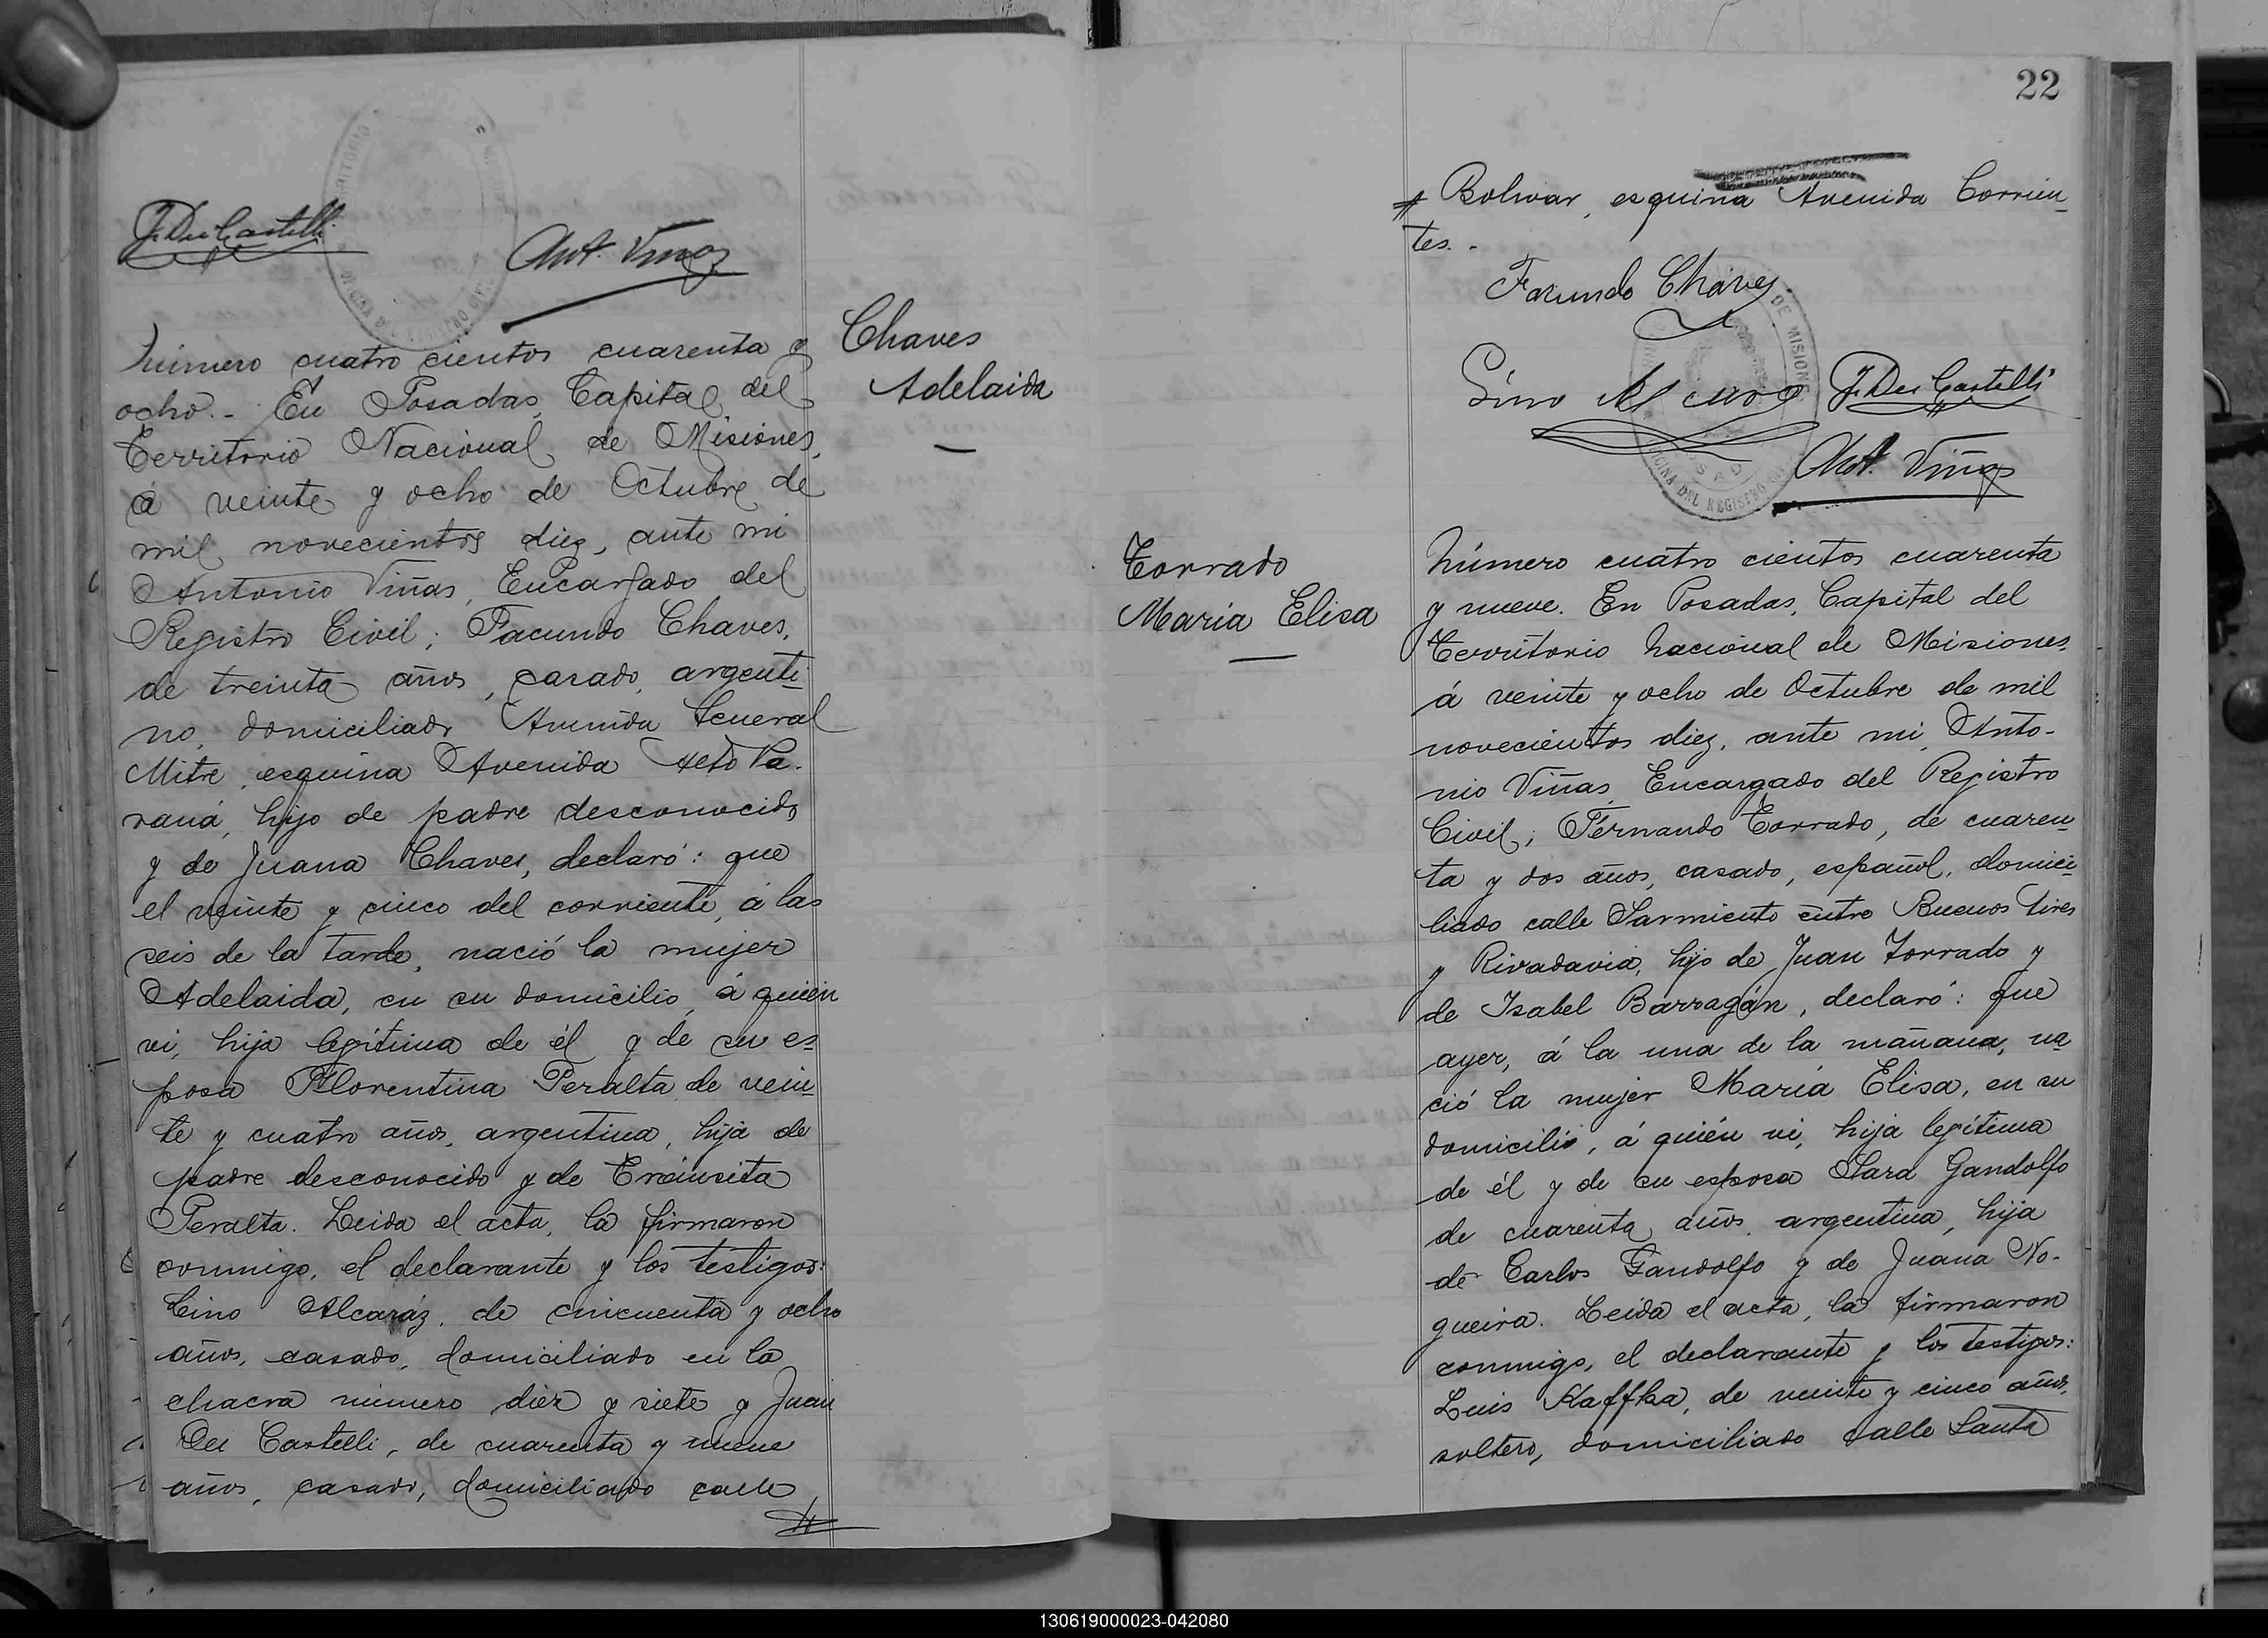 J. Dei Castelli
Ant. Viñas
Número cuatro cientos cuarenta y
ocho.- En Posadas, Capital del
Territorio Nacional de Misiones,
á veinte y ocho de Octubre de
mil novecientos diez, ante mi
Antonio Viñas, Encargado del
Registro Civil; Facundo Chaves,
de treinta años, casado, argenti-
no, domiciliado Avenida General
Mitre, esquina Avenida Alto Pa-
raná, hijo de padre desconocido
y de Juana Chaves, declaró: que
el veinte y cinco del corriente, á las
seis de la tarde, nació la mujer
Adelaida, en su domicilio, á quién
vi, hija legítima de él y de su es-
posa Florentina Peralta, de vein-
te y cuatro años, argentina, hija de
padre desconocido y de Tránsita
Peralta. Leida el acta, la firmaron
conmigo, el declarante y los testigos:
Lino Alcaráz, de cincuenta y ocho
años, casado, domiciliado en la
chacra número diez y siete y Juan
Dei Castelli, de cuarenta y nueve
años, casado, domiciliado calle
Chaves
Adelaida
22
Bolivar, esquina Avenida Corrien-
tes.-
Facundo Chaves
Lino Al
J. Dei Castelli
Ant. Viñas
OFICINA DEL REGISTRO
DE MISIONES
Torrado
María Elisa
Número cuatro cientos cuarenta
y nueve. En Posadas, Capital del
Territorio Nacional de Misiones,
á veinte y ocho de Octubre de mil
novecientos diez, ante mi, Anto-
nio Viñas, Encargado del Registro
Civil; Fernando Torrado, de cuaren-
ta y dos años, casado, español, domici-
liado calle Sarmiento entre Buenos Aires
y Rivadavia, hijo de Juan Torrado y
de Isabel Barragán, declaró: que
ayer, á la una de la mañana, na-
ció la mujer María Elisa, en su
domicilio, á quién vi, hija legítima
de él y de su esposa Sara Gandolfo
de cuarenta años, argentina, hija
de Carlos Gandolfo y de Juana No-
gueira. Leida el acta, la firmaron
conmigo, el declarante y los testigos:
Luis Kaffka, de veinte y cinco años,
soltero, domiciliado calle Santa
130619000023-042080